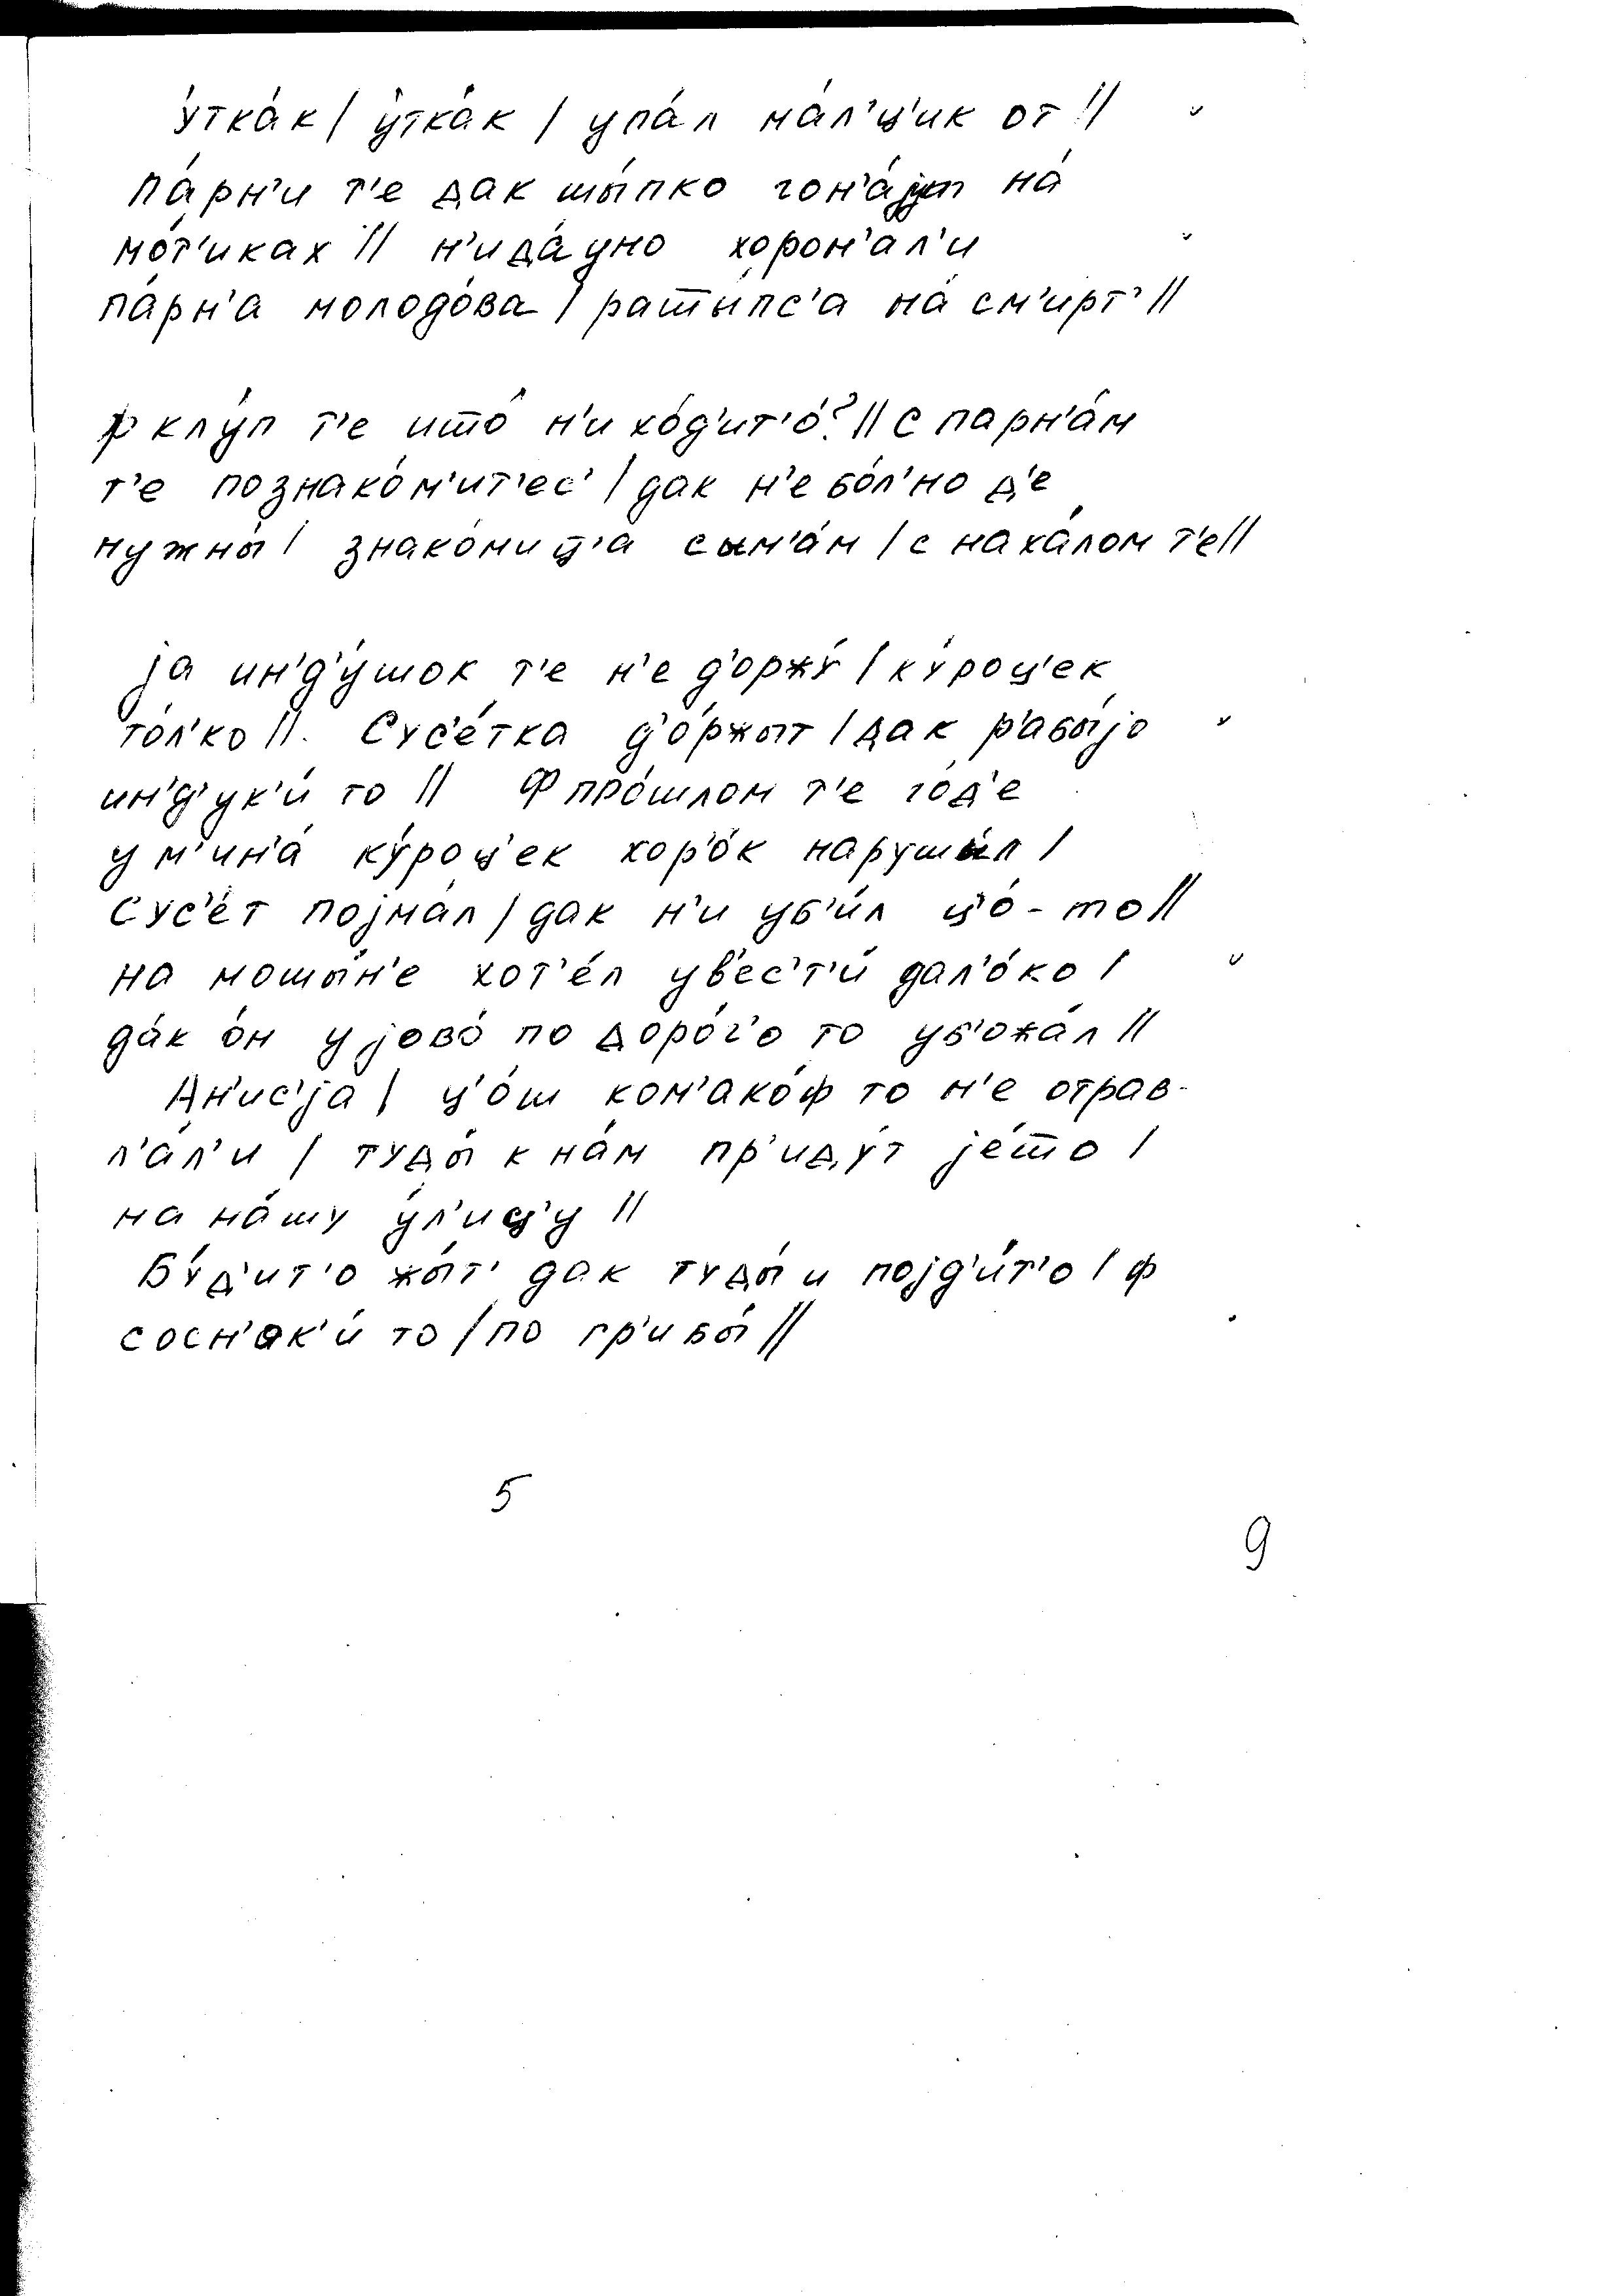 у́тка́к / у́тка́к / упа́л ма́л'ц'ик от //
па́рн'и т'е дак шы́пко гон'а́јут на́
мо́т'иках // н'ида́уно хорон'а́л'и
па́рн'а молодо́ва / рашы́пс'а на́ см'ирт' //
ф клу́п т'е ишто́ н'и хо́д'ит'о́? // с парн'а́м
т'е познако́м'ит'ес' / дак н'е бо́л'но д'е
нужны́ / знако́миц'а сым'а́м / с наха́лом т'е //
ја ин'д'у́шок т'е н'е д'оржу́ / ку́роц'ек
то́л'ко //. Сус'е́тка д'о́ржыт / дак р'абы́јо
ин'д'ук'и́ то // Ф про́шлом т'е го́д'е
у м'ин'а́ ку́роц'ек хор'о́к нарушы́л /
Сус'е́т појма́л / дак н'и уб'и́л ц'о́-то //
на мошы́н'е хот'е́л ув'ес'т'и́ дал'о́ко /
да́к о́н у јово́ по доро́г'о то уб'ожа́л //
Ан'ис'ја / ц'о́ш ком'ако́ф то н'е отрав-
л'а́л'и / туды́ к на́м пр'иду́т је́што /
на на́шу у́л'иц'у //
Бу́д'ит'о жы́т' дак туды́ и појд'и́т'о / ф
сосн'ак'и́ то / по гр'ибы́ //
5
9